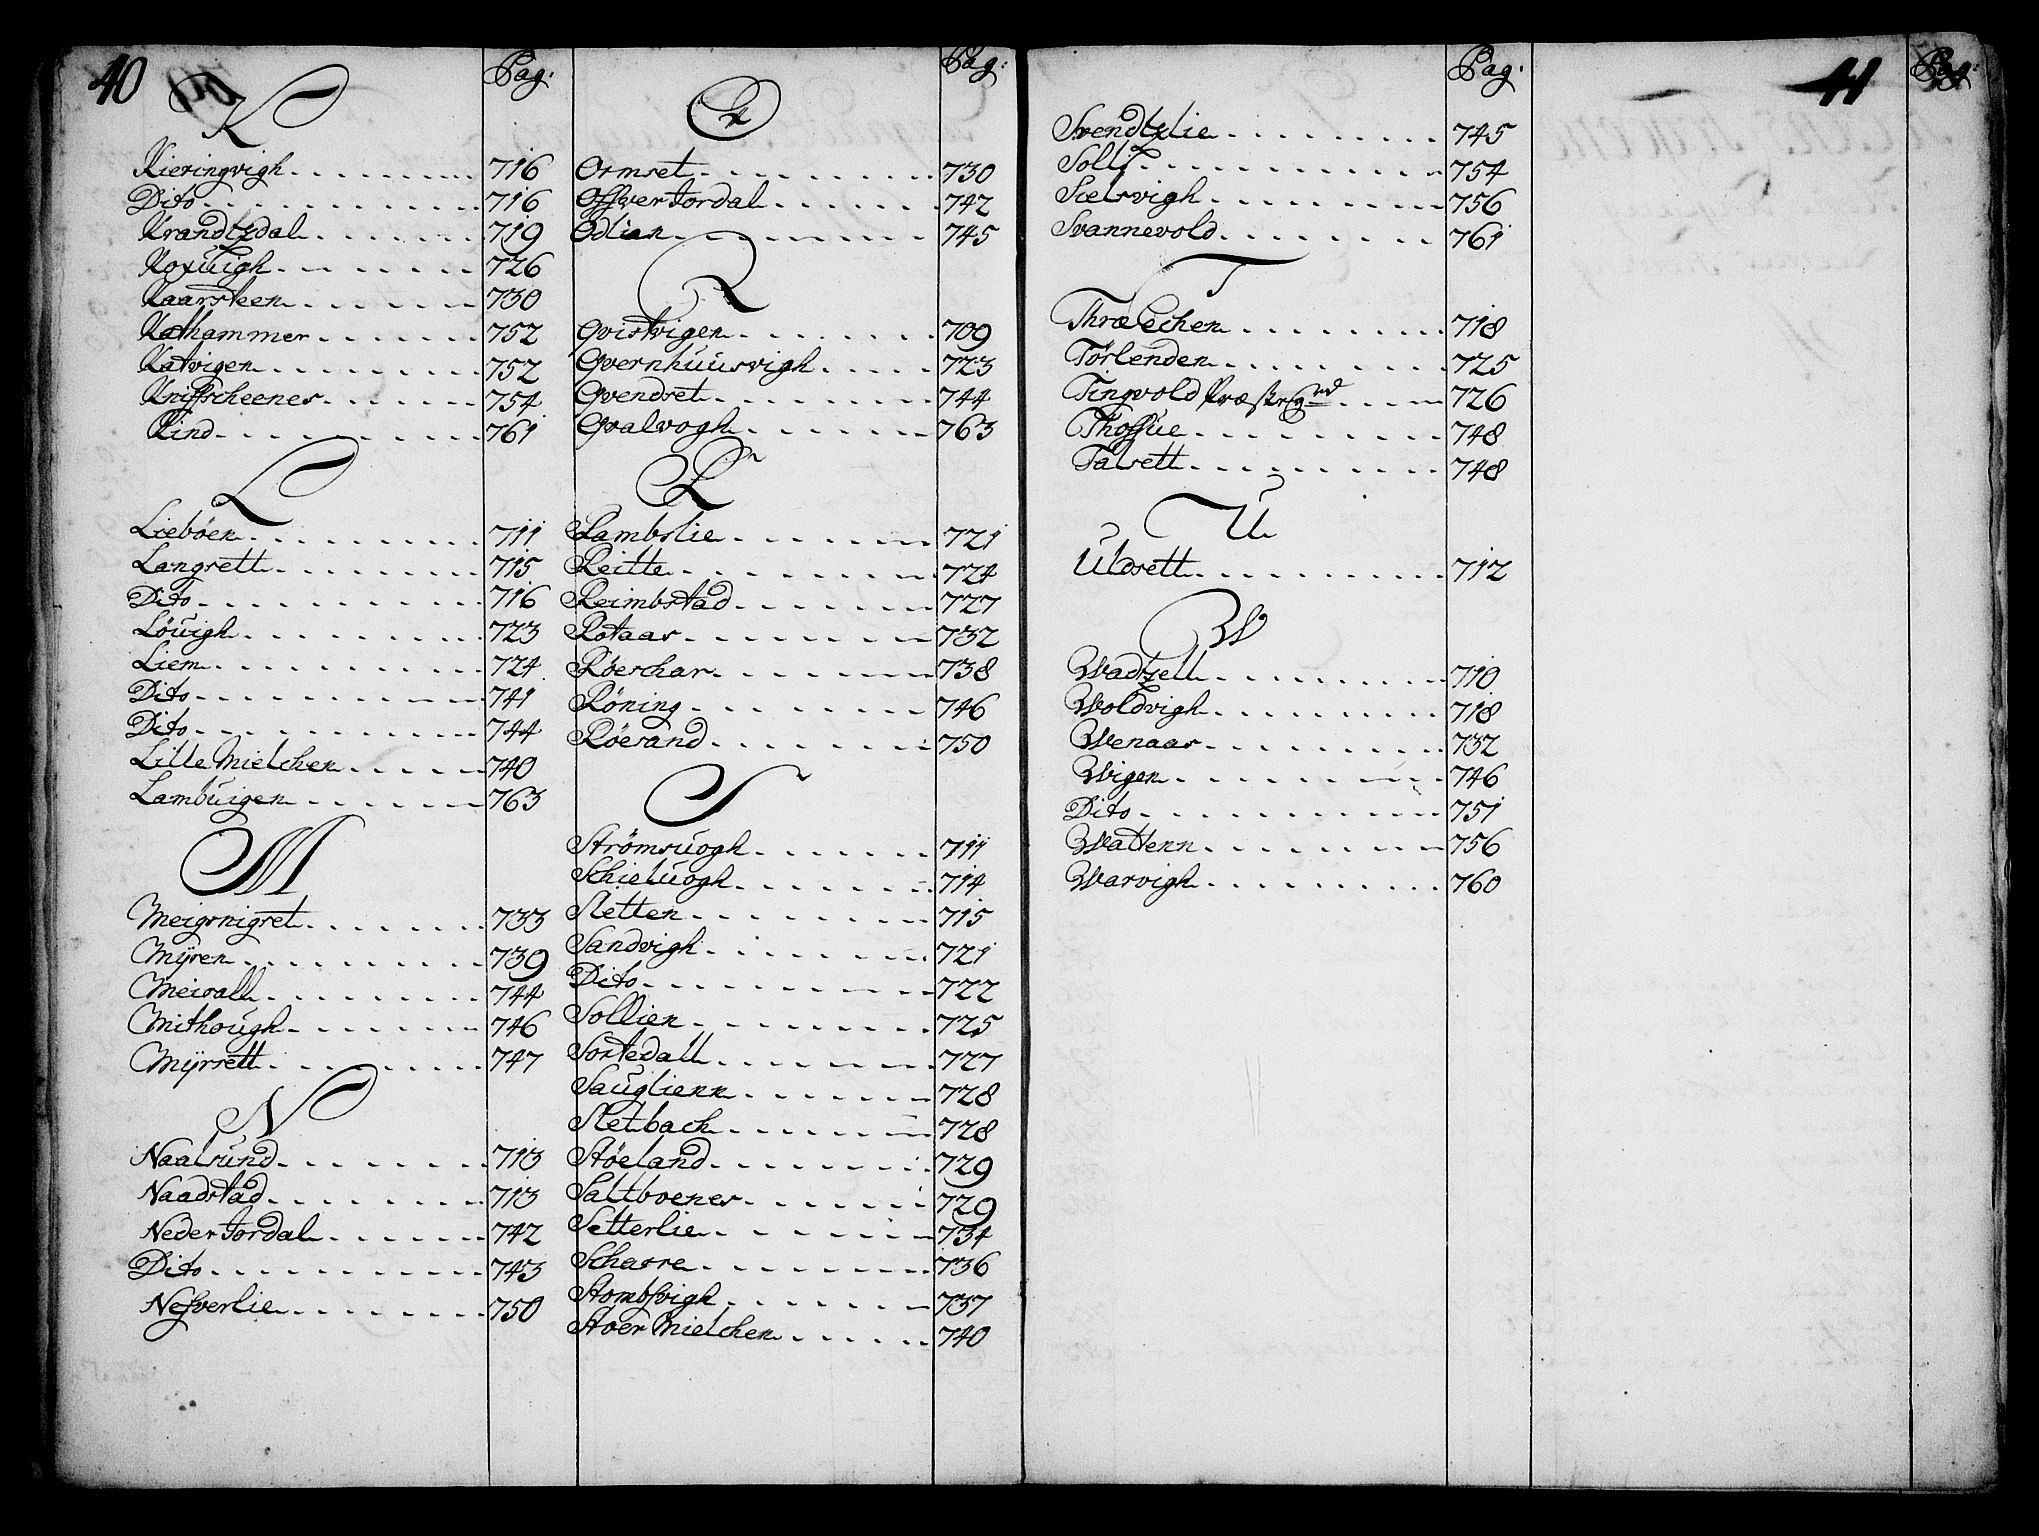 40
Pag:
K
Kieringvigh 716
Dito 716
Krandtzdal 719
Koxuigh 726
Kaarsteen 730
Kathammer 752
Katvigen 752
Kniffscheenes 754
Kind 761
L
Liebøen 711
Langsett 715
Dito 716
Løuigh 723
Liem 724
Dito 741
Dito 744
Lille Mielchen 740
Lambuigen 763
M
Meigsnigset 733
Mÿren 739
Meisall 744
Mithough 746
Mÿrsett 747
N
Naalsund 713
Naadstad 713
Neder Tordal 742
Dito 743
Nesverlie 750
Pag:
O
Ormset 730
Offver Tordal 742
Odlien 745
Q
Qvistvigen 709
Qvernhuusvigh 723
Qvendset 744
Qvalvogh 763
R
Rambslie 721
Reitte 724
Reimbstad 727
Rotaas 732
Røeschar 738
Røning 746
Røesand 750
S
Strømsuogh 711
Schieluogh 714
Sletten 715
Sandvigh 721
Dito 722
Sollien 725
Sortedall 727
Sauglienn 728
Sletbach 728
Støeland 729
Saltboenes 729
Setterlie 734
Scharre 736
Stombsvigh 737
Stoer Mielchen 740
41
Pag:
Svendtzlie 745
Sollj 754
Sælsvigh 756
Svannevold 761
T
Thræeechen 718
Tørlenden 725
Tingvold Præstegrd 726
Thossue 748
Talsett 748
U
Uldsett 712
W
Wadtzell 710
Woldvigh 718
Wenaas 732
Wigen 746
Dito 751
Wattenn 756
Warvigh 760
Pag: